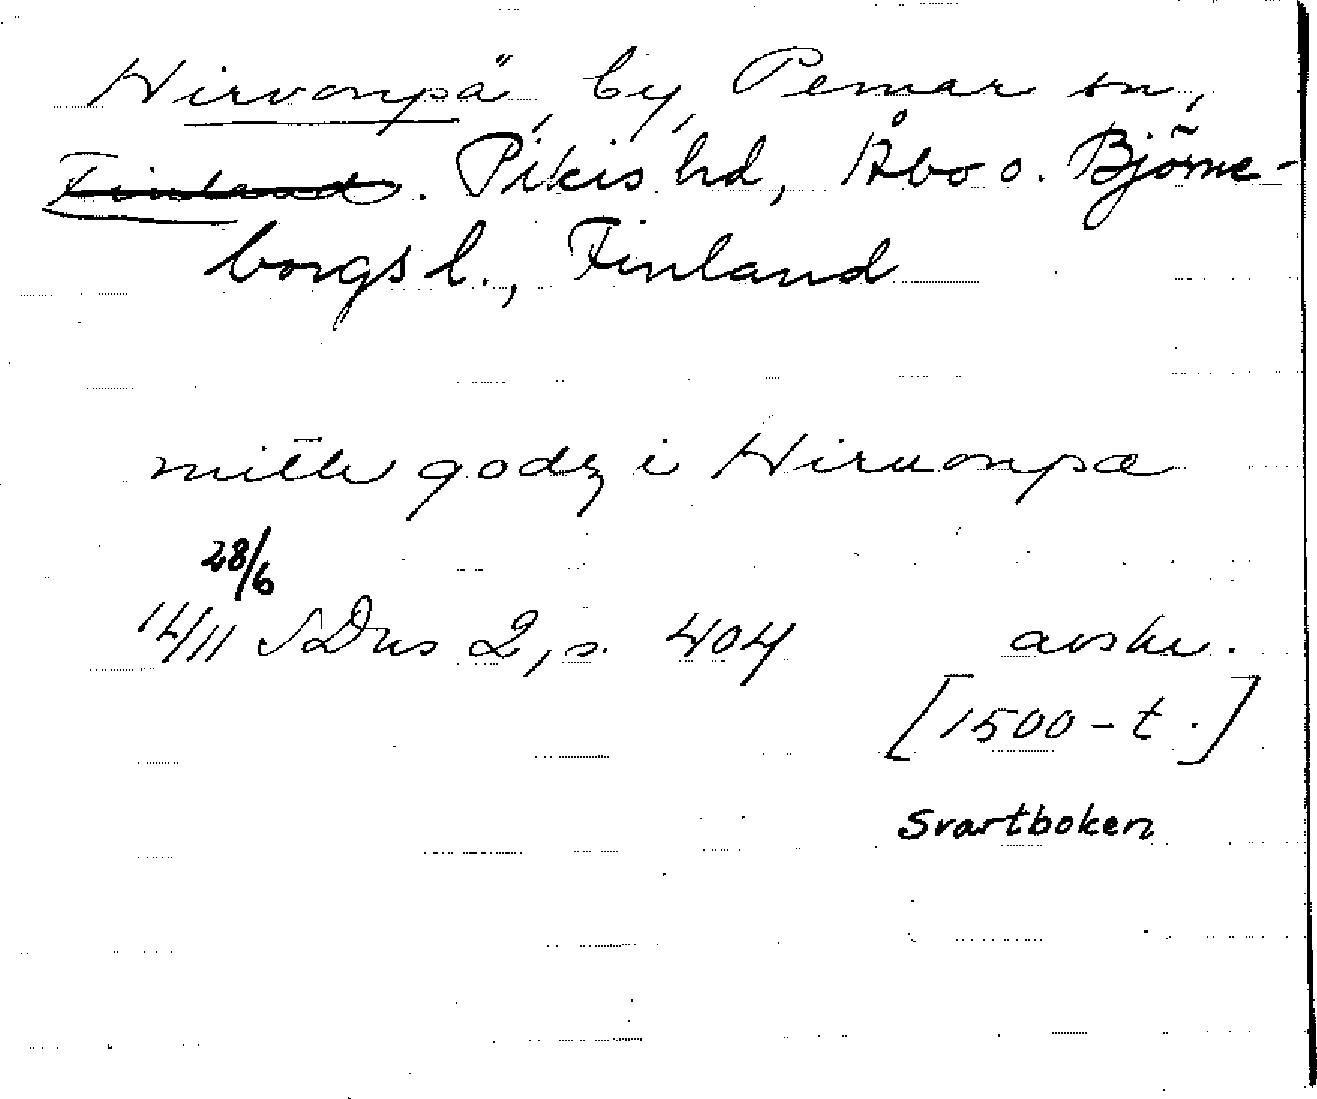 Hirvonpä, by, Pemar sn,
Finland. Pikis hd, Åbo o. Björne-
borgs l., Finland
mitt godz i Hiruonpæ
28/6
14/11 SDns 2, s. 404 avskr.
[1500-t.]
Svartboken